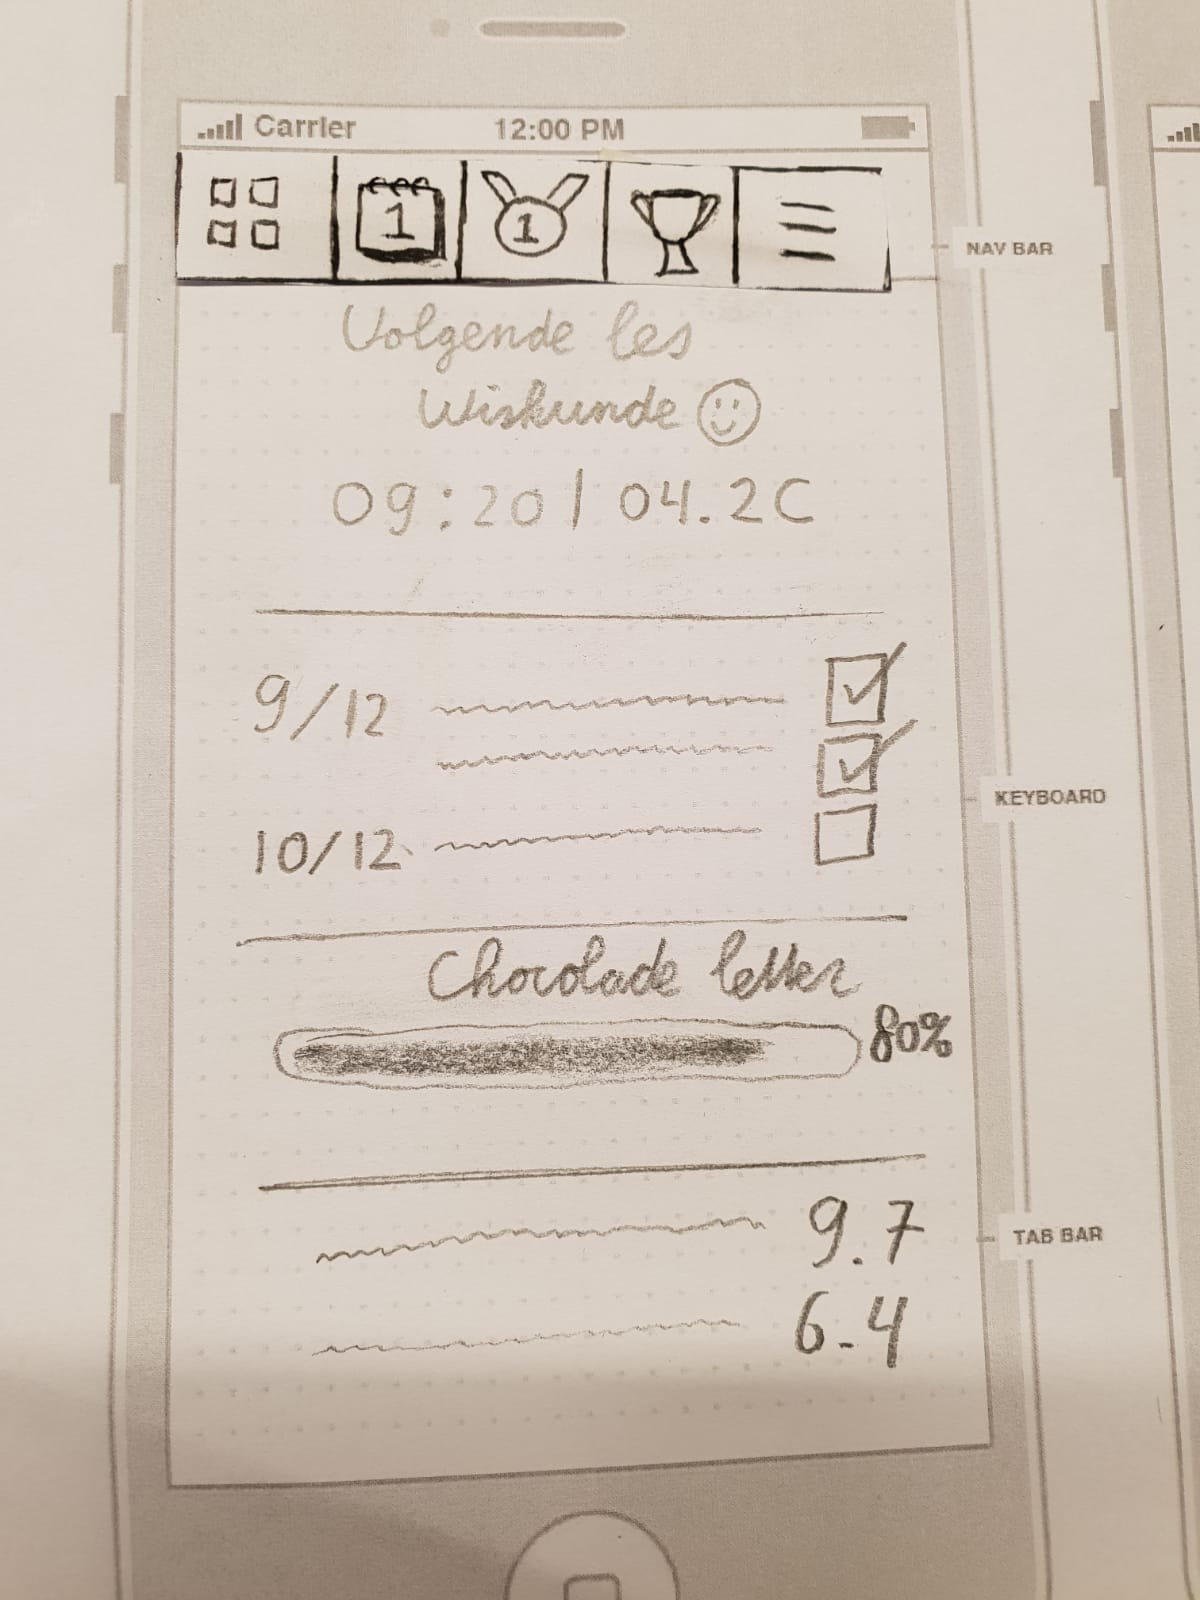 Carrier 12:00 PM
1 1
NAV BAR
Volgende les
Wiskunde
09:20 | 04.2C
9/12
KEYBOARD
10/12
Chocolade letter
80%
9.7
TAB BAR
6.4